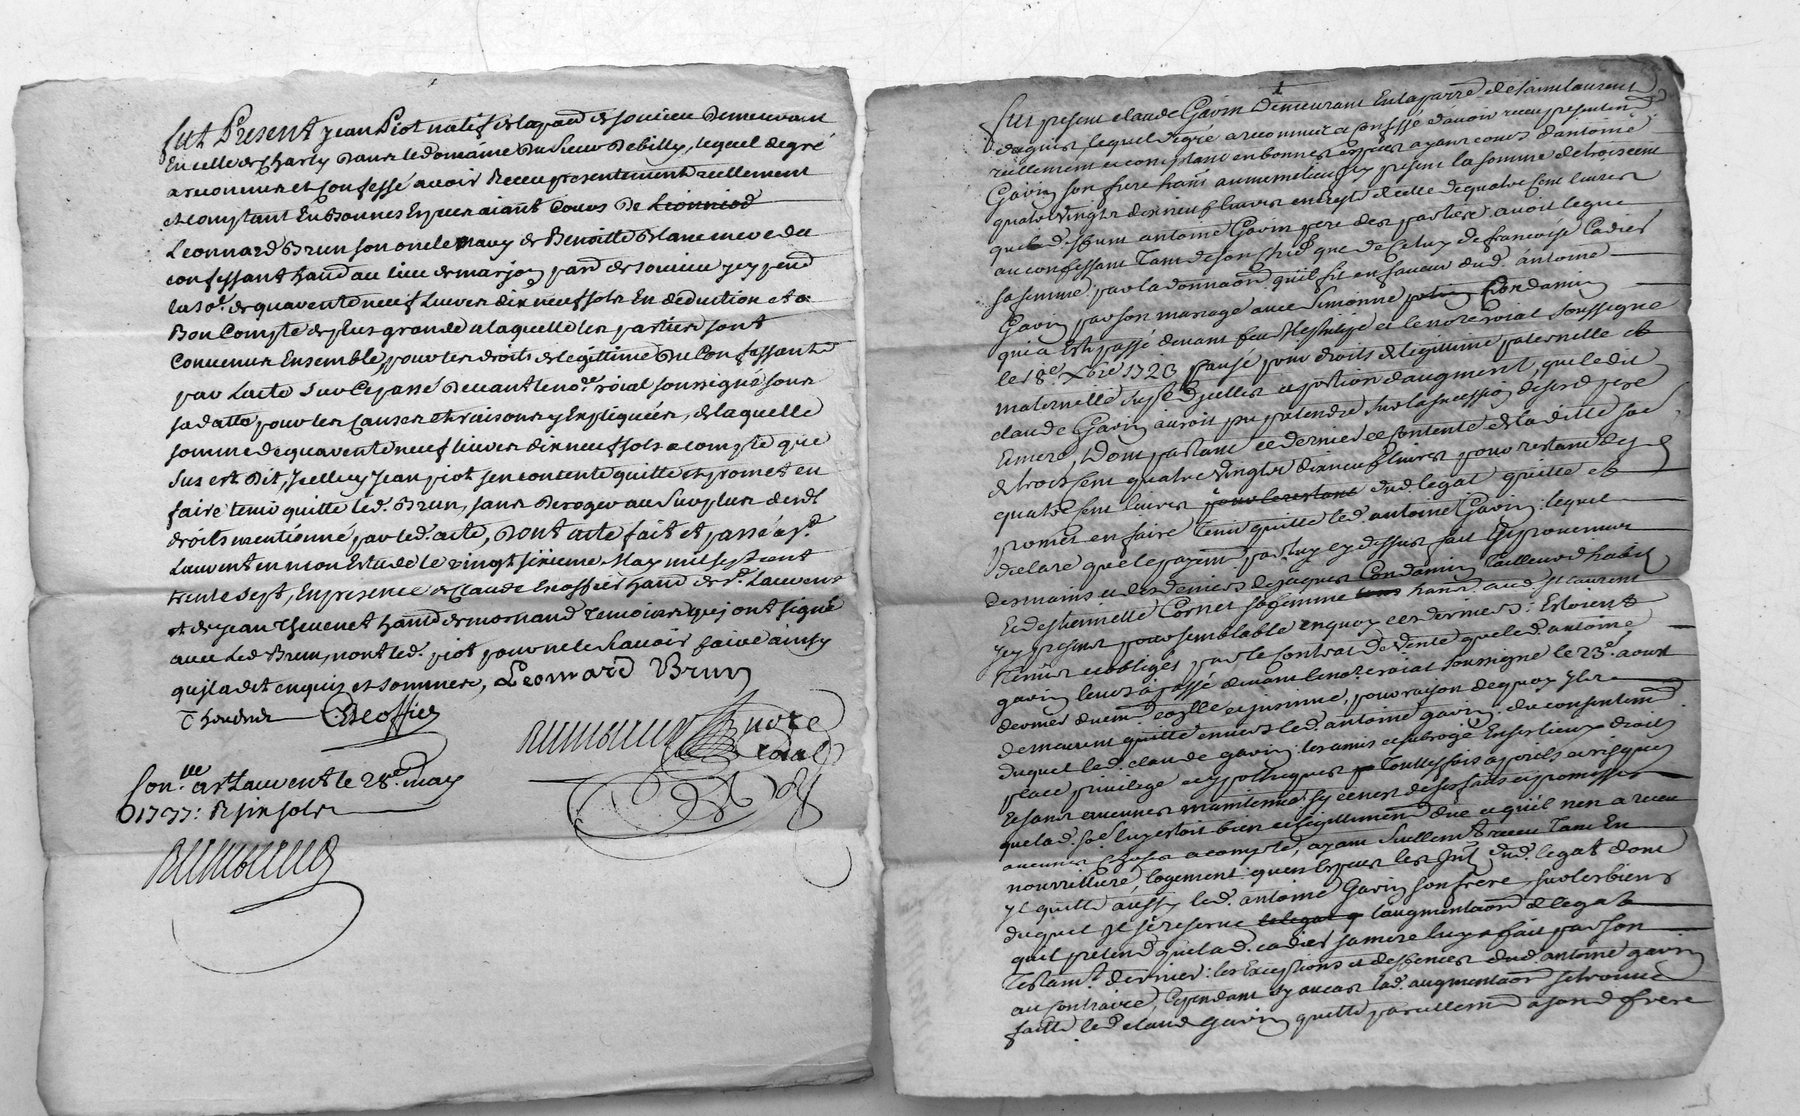 fut Present Jean Piot natif de la parr. de soucieu Demeurant
En celle de Charly Dans le domaine du Sieur Debilly, lequel de gré
a reconnu et Confessé avoir Receu presentement reellement
et comptant En Bonnes Especes aiant Cours De Lionniod
Leonnard Brun son oncle mary de Benoitte Blanc mere du
confessant hant au lieu de marjon parr. de soucieu y cy prnt
la so.e de quarente neuf Livres dix neuf sols En deduction et a
Bon Compte de plus grande a laquelle les parties sont
Convenus Ensemble, pour les droits de legittime du Confessant
par L'acte Sur Ce passé Devant le no.re roial soussigné sous
sa datte pour les Causes et raisons y Expliquées, de laquelle
somme de quarente neuf livres dix neuf sols a compte que
Sus est Dit, Icelluy Jean piot s'en contente quitte et promet en
faire tenir quitte led. Brun, sans Deroger au Surplus desd.
droits mentionné par led. acte, Dont acte fait et passé a St.
Laurent en mon Estude le vingt sixieme May mil sept cent
trente sept, En presence de Claude Escoffier hant de St. Laurent
et de Jean Thevenet hant de mornand Temoins qui ont signé
avec Led. Brun, non led. piot pour ne le scavoir faire ainsy
qu'il a dit enquis et sommés, Leonnard Brun
Thevenet Escoffier
nore
roial
Con.lle a St Laurent le 28.e may
1737: R six sols
1
fut present claude Gavin Demeurant En la parre. de saint laurent
dagny lequel de gré a reconnu et confessé d'avoir receu presentemt.
reellement et comptant en bonnes especes ayans cours d'antoine
Gavin son frere hant au mesme lieu y cy present la somme de trois cent
quatre vingts dix neuf livres en reste de celle de quatre cent livres
que deffunt antoine Gavin pere des parties avoit legué
au confessant Tant de son Chef que de Celuy de francoise Cadier
sa femme par la donnaon qu'il fit en faveur dud. antoine
Gavin par son mariage avec Simonne Condamin
qui a Esté passé devant feu Me philipe et le nore roial soussigné
le 18.e Xbre 1723 causé pour droits de legittime paternelle et
maternelle, supplement d'icelles et portion d'augment, que le dit
claude Gavin auroit pu pretendre sur la succession de sesd. pere
Et mere, Dont partant ce dernier se contente de la ditte so.e
de trois cent quatre vingts dix neuf livres pour restant des
quatre cent livres pour le restant dud. legat quitte et
promet en faire tenir quitte led. antoine Gavin lequel
declare que le payemt. par luy cy dessus fait Est provenu
des mains et des deniers de jacques Condamin Tailleur d'habits
Et d'estiennette Cornet sa femme hants aud. St laurent
y cy presens pour semblable en quoy ces derniers Estoient
Tenus et obligés par le Contrat de Vente que led. antoine
gavin leur a passé devant le nore roial soussigné le 23.e aoust
dernier duemt. conllé et insinué, pour raison de quoy ils
demeurent quitte envers led. antoine gavin, du consentemt.
duquel led. claude gavin les a mis et subrogé En ses lieux droits
place privilege et ypotheques Toutesfois a perils et risques
Et sans aucune maintenue si ce n'est de ses faits et promesses
que lad. so.e luy estoit bien et legittimemt. düe et qu'il n'en a receu
aucunes choses a compte, ayant seullemt. receu Tant En
nourriture, logement qu'en Especes les Jnts. dud. legat dont
il quitte aussy led. antoine Gavin son frere, sur les biens
duquel il se reserve le legat q l'augmentaon de legat
qu'il pretend que lad. cadier sa mere luy a fait par son
Testamt. dernier: les Exceptions et deffences dud. antoine gavin
au contraire, Cependant ou au cas lad. augmentaon se trouve
faitte led. claude gavin quitte pareillemt. a sond. frere